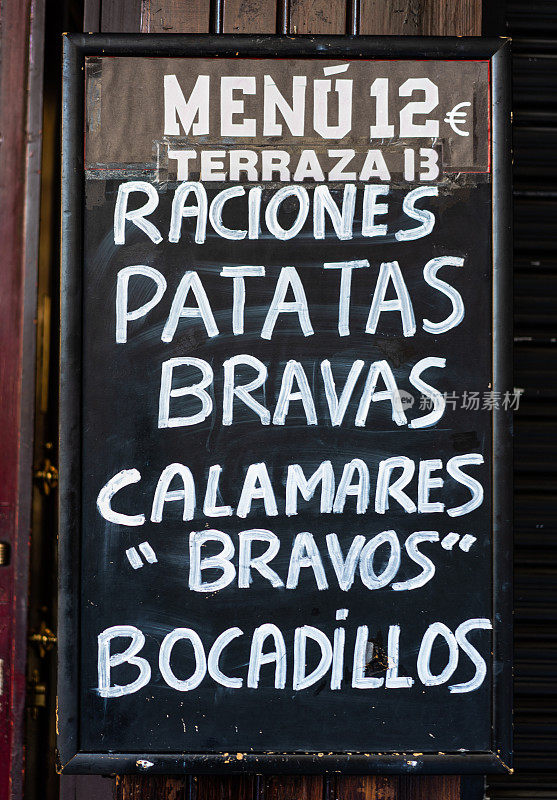 MENÚ 12 €
TERRAZA 13
RACIONES
PATATAS
BRAVAS
CALAMARES
"BRAVOS"
BOCADILLOS
new 新片场素材